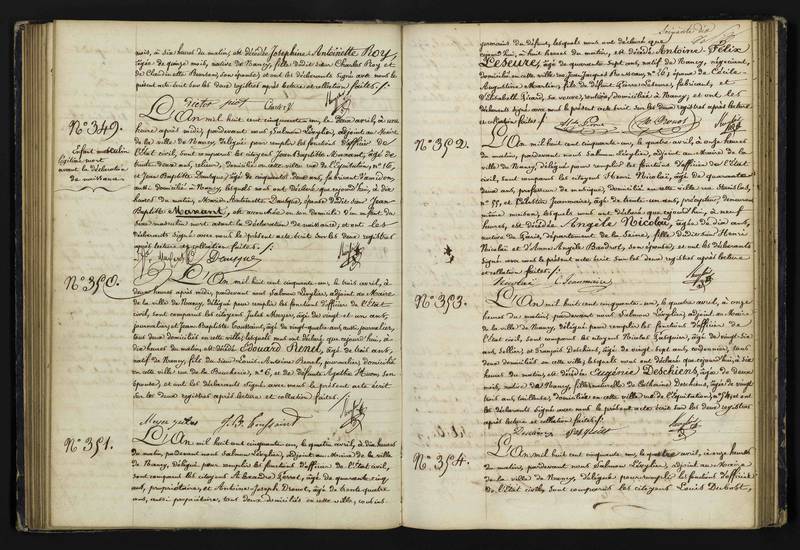 mois, à six heures du matin, est décédée Joséphine Antoinette Roy,
âgée de quinze mois, native de Nancy, fille dudit sieur Charles Roy et
de Claudinette Bourson, son épouse; et ont les déclarants signé avec nous le
présent acte écrit sur les deux registres après lecture et collation faites.
N° 349.
Enfant masculin
légitime mort
avant la déclaration
de naissance.
L'On mil huit cent cinquante-un, le deux avril, à une
heure après midi, pardevant nous Salmon Lévylier, adjoint au Maire
de la ville de Nancy, délégué pour remplir les fonctions d'officier de
l'État civil, sont comparus les citoyens Jean Baptiste Manant, âgé de
ans, relieur, domicilié en cette ville rue de l'Équitation, n° 16,
et Jean Baptiste Dousque, âgé de cinquante ans, fabricant d'amidon,
aussi domicilié à Nancy, lesquels nous ont déclaré que ejourd'hui, à dix
heures du matin, Marie Antoinette Dousque, épouse dudit sieur Jean
Baptiste Manant, est accouchée en son domicile d'un enfant du
sexe masculin mort avant la déclaration de naissance; et ont les
déclarants signé avec nous le présent acte écrit sur les deux registres
après lecture et collation faites.
Dousque
N° 350.
L'On mil huit cent cinquante-un, le trois avril, à
deux heures après midi, pardevant nous Salmon Lévylier, adjoint au Maire
de la ville de Nancy, délégué pour remplir les fonctions d'officier de l'État
civil, sont comparus les citoyens Jules Meuyer, âgé de vingt et un ans,
journalier, et Jean Baptiste Toussaint, âgé de vingt-quatre ans, aussi journalier,
tous deux domiciliés en cette ville; lesquels nous ont déclaré que ejourd'hui, à
dix heures du matin, est décédé Edouard Benel, âgé de trois ans,
natif de Nancy, fils du sieur Louis Antoine Benel, journalier, domicilié
en cette ville rue de la Boucherie, n° 6, et de défunte Agathe son
épouse; et ont les déclarants signé avec nous le présent acte écrit
sur les deux registres après lecture et collation faites.
J. B. Toussaint
N° 351.
L'On mil huit cent cinquante-un, le quatre avril, à dix heures
du matin, pardevant nous Salmon Lévylier, adjoint au Maire de la ville
de Nancy, délégué pour remplir les fonctions d'officier de l'État civil,
sont comparus les citoyens Alexandre Pierrot, âgé de quarante cinq
ans, propriétaire, et Antoine Joseph Drouot, âgé de trente quatre
ans, aussi propriétaire, tout deux domiciliés en cette ville, cousins
Soixante dix
germains du défunt, lesquels nous ont déclaré que
ejourd'hui, à huit heures du matin, est décédé Antoine Félix
Leseure, âgé de quarante sept ans, natif de Nancy, négociant,
domicilié en cette ville rue Jean Jacques Rousseau, n° 26, époux de Cécile
Augustine Mantin, fils de défunt Pierre Leseure, fabricant, et
d'Élisabeth Girard, sa veuve, rentière, domiciliée à Nancy, et ont les
déclarants signé avec nous le présent acte écrit sur les deux registres après lecture
et collation faites.
N° 352.
L'On mil huit cent cinquante-un, le quatre avril, à onze
heures du matin, pardevant nous Salmon Lévylier, adjoint au Maire de la
ville de Nancy, délégué pour remplir les fonctions d'officier de l'État
civil, sont comparus les citoyens Henri Nicolaï, âgé de quarante
deux ans, professeur de musique, domicilié en cette ville rue Stanislas,
n° 55, et Jeanmaire, âgé de trente-un ans, précepteur, demeurant
même maison; lesquels nous ont déclaré que ejourd'hui, à neuf
heures, est décédée Angèle Nicolaï, âgée de dix ans,
native de Paris, département de la Seine, fille dudit sieur Henri
Nicolaï et d'Anne Angèle Baudot, son épouse; et ont les déclarants
signé avec nous le présent acte écrit sur les deux registres après lecture
et collation faites.
Nicolaï Jeanmaire
N° 353.
L'On mil huit cent cinquante-un, le quatre avril, à onze
heures du matin, pardevant nous Salmon Lévylier, adjoint au Maire
de la ville de Nancy, délégué pour remplir les fonctions d'officier de
l'État civil, sont comparus les citoyens Nicolas Pasquier, âgé de vingt-six
ans, sellier, et François Deschiens, âgé de vingt sept ans, cordonnier, tous
deux domiciliés en cette ville; lesquels nous ont déclaré que ejourd'hui, à dix
heures du matin, est décédée Eugénie Deschiens, âgée de deux
mois, native de Nancy, fille naturelle de Catherine Deschiens, âgée de vingt
trois ans, tailleuse, domiciliée en cette ville rue de l'Équitation, n° 54; et ont
les déclarants signé avec nous le présent acte écrit sur les deux registres
après lecture et collation faites.
Deschiens Pasquier
N° 354.
L'On mil huit cent cinquante-un, le quatre avril, à onze heures
du matin, pardevant nous Salmon Lévylier, adjoint au Maire
de la ville de Nancy, délégué pour remplir les fonctions d'officier
de l'État civil, sont comparus les citoyens Louis Dubost,